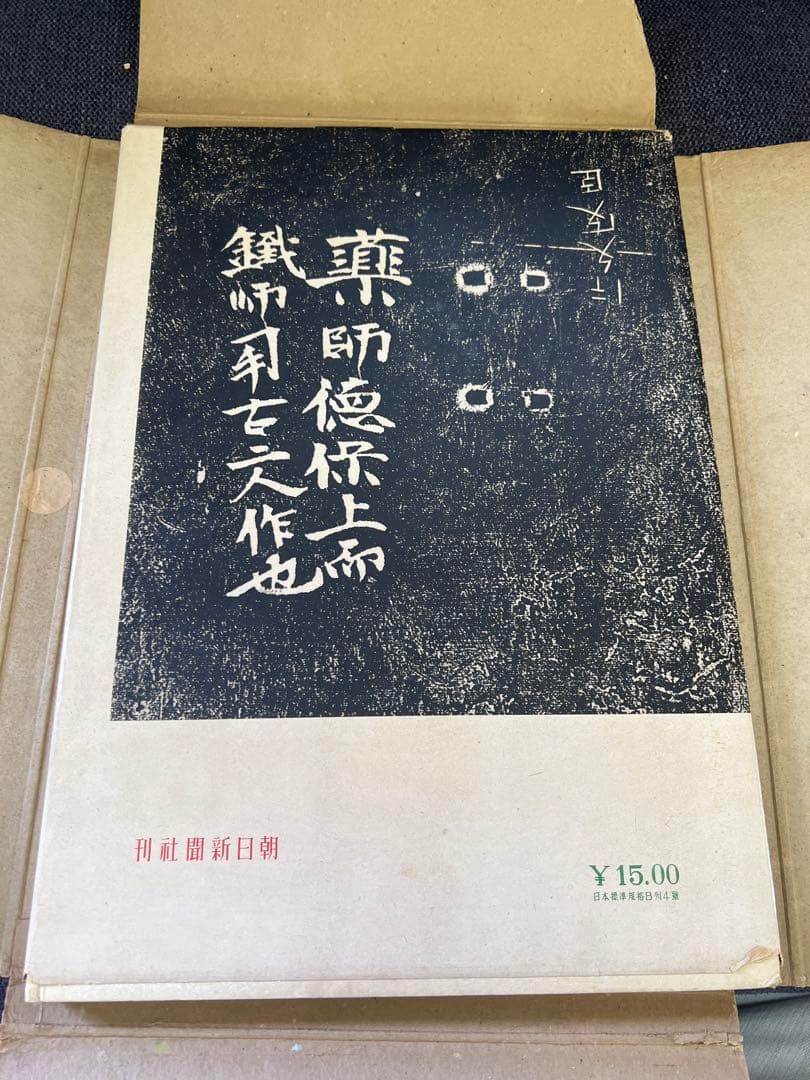 藥師德保上而
鐵師古二人作也
朝日新聞社刊
¥15.00
日本標準規格B列4號